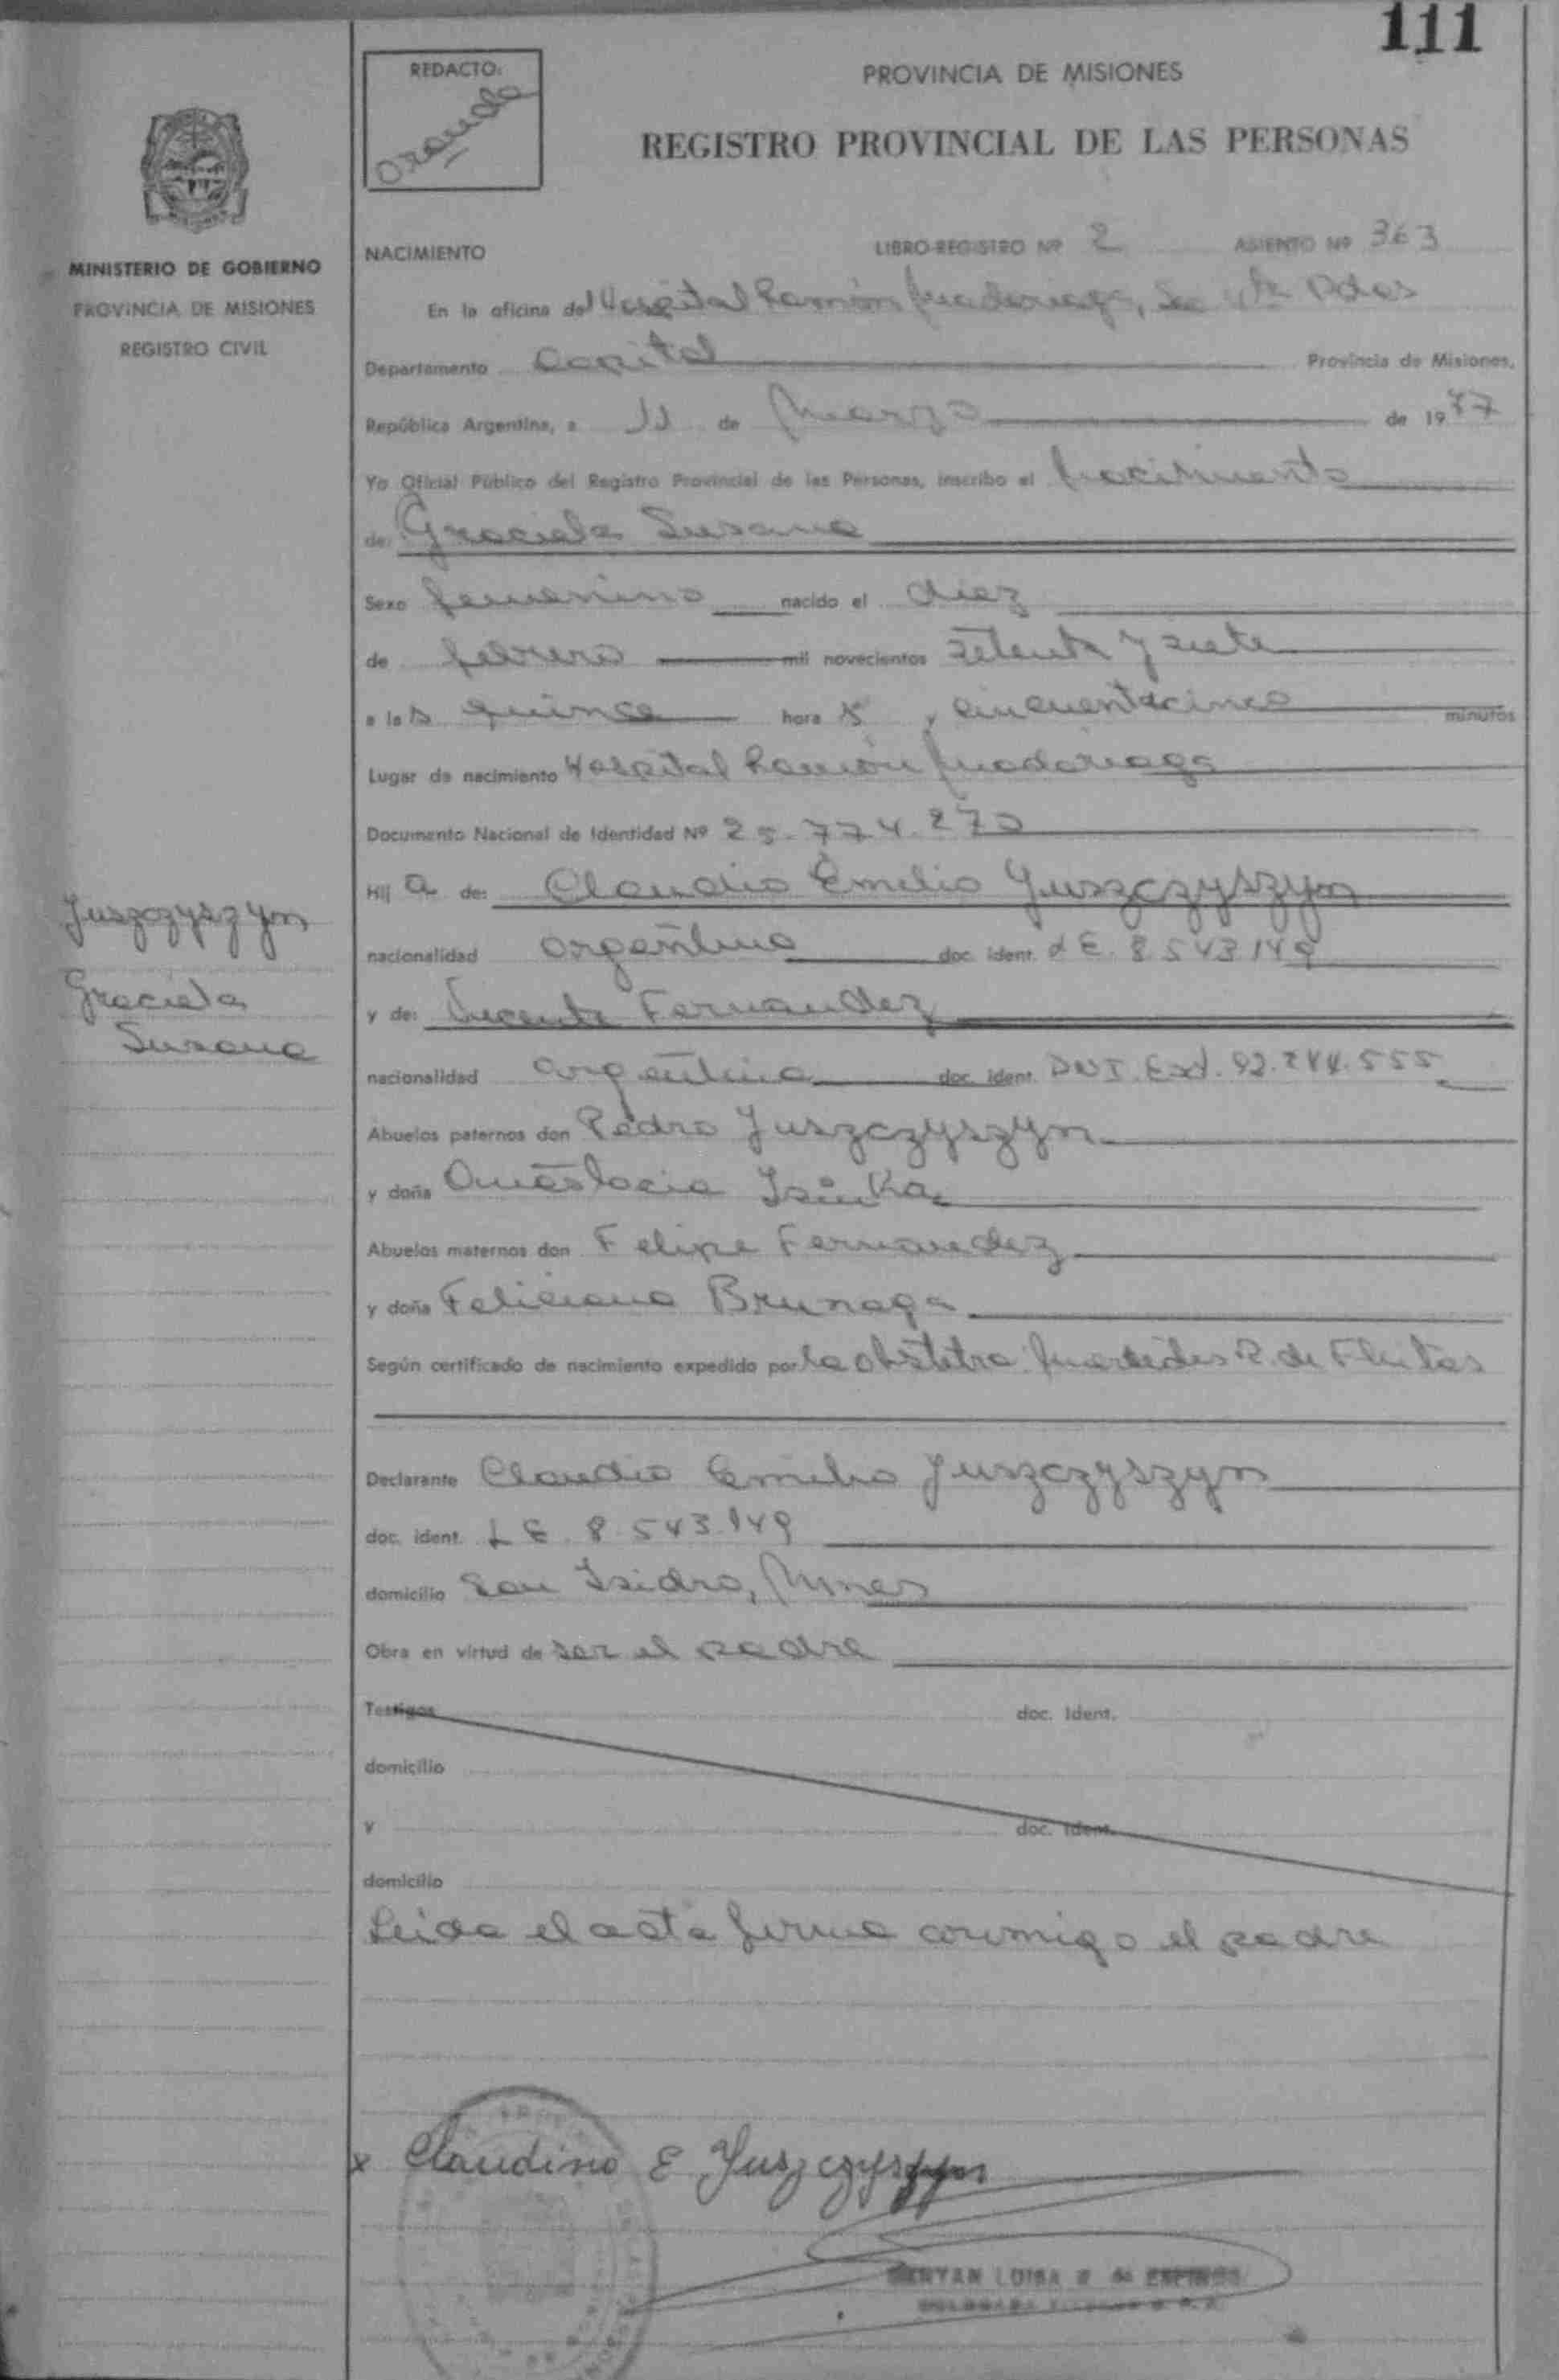 111
REDACTO:
PROVINCIA DE MISIONES
REGISTRO PROVINCIAL DE LAS PERSONAS
MINISTERIO DE GOBIERNO
PROVINCIA DE MISIONES
REGISTRO CIVIL
NACIMIENTO LIBRO-REGISTRO Nº 2 ASIENTO Nº 363
En la oficina del Hospital Ramón Madariaga, Pdas
Departamento Capital Provincia de Misiones,
República Argentina, a 11 de Marzo de 1977
Yo Oficial Público del Registro Provincial de las Personas, inscribo el Nacimiento
de: Graciela Susana
Sexo femenino nacido el diez
de febrero mil novecientos setenta y siete
a las quince horas y cincuentacinco minutos
Lugar de nacimiento Hospital Ramón Madariaga
Documento Nacional de Identidad Nº 25.774.270
Hija de: Claudio Emilio Juszczyszyn
nacionalidad argentina doc. ident. LE. 8.543.149
y de: Fernandez
nacionalidad argentina doc. ident. DNI. Ext. 92.244.555
Abuelos paternos don Pedro Juszczyszyn
y doña Anastacia
Abuelos maternos don Felipe Fernandez
y doña Feliciana Brunaga
Según certificado de nacimiento expedido por la obstetra Mercedes R. de Fleitas
Declarante Claudio Emilio Juszczyszyn
doc. ident. LE. 8.543.149
domicilio San Isidro, Mnes
Obra en virtud de ser el padre
Testigos doc. Ident.
domicilio
y doc. Ident.
domicilio
Leida el acta firma conmigo el padre
Juszczyszyn
Graciela
Susana
x Claudino E Juszczyszyn
LUISA